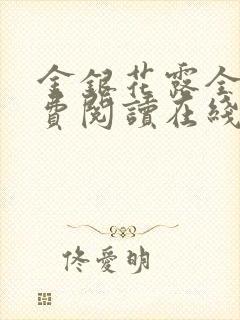 金銀花露全
費閱讀在綫
佟愛明